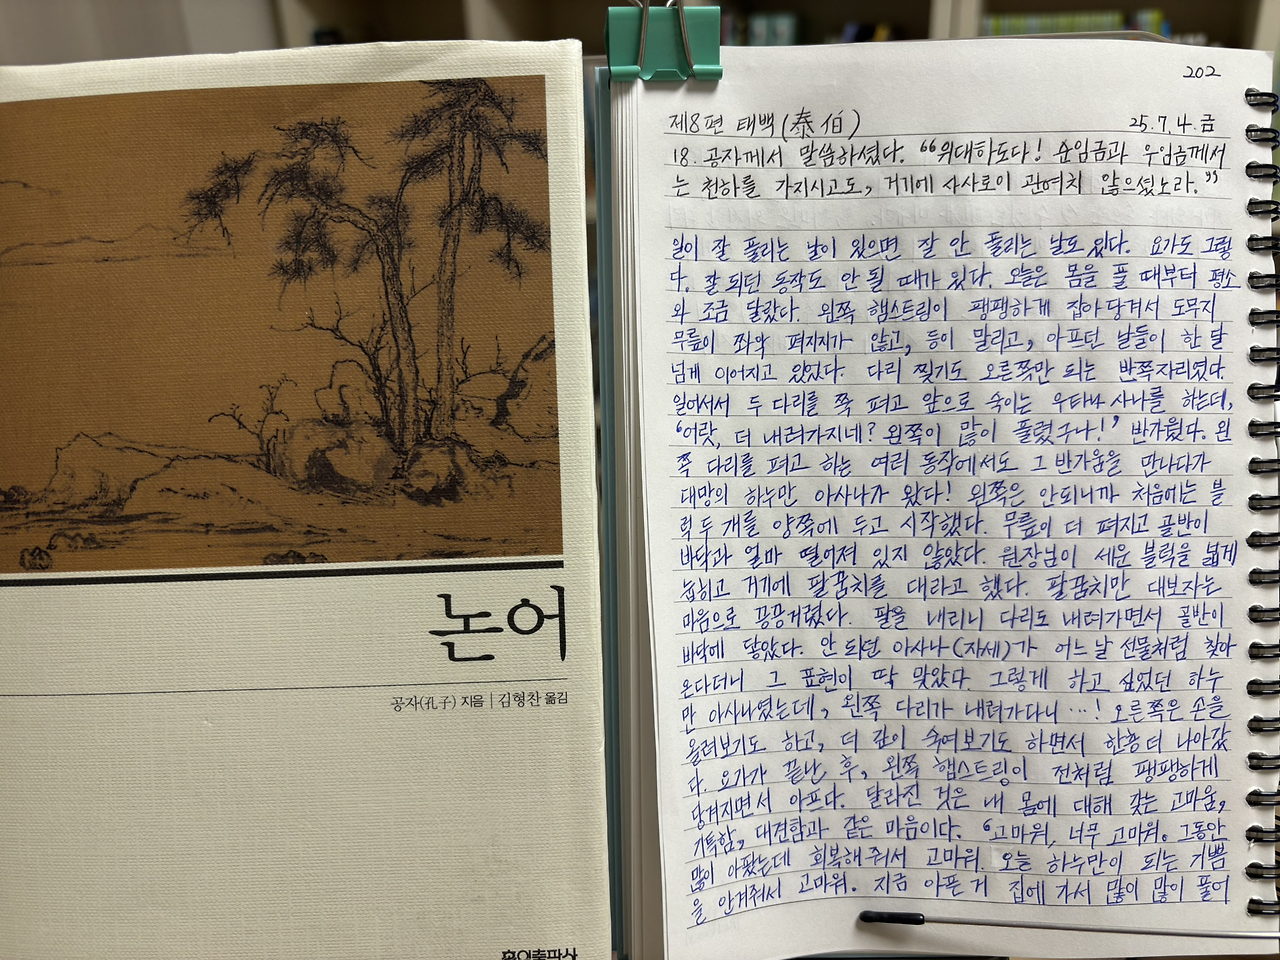 논어
공자(孔子) 지음 | 김형찬 옮김
홍익출판사
202
제8편 태백(泰伯) 25.7.4.금
18. 공자께서 말씀하셨다. "위대하도다! 순임금과 우임금께서
는 천하를 가지시고도, 거기에 사사로이 관여치 않으셨노라."
일이 잘 풀리는 날이 있으면 잘 안 풀리는 날도 있다. 요가도 그렇
다. 잘 되던 동작도 안 될 때가 있다. 오늘은 몸을 풀 때부터 평소
와 조금 달랐다. 왼쪽 햄스트링이 팽팽하게 잡아당겨서 도무지
무릎이 쫘악 펴지지가 않고, 등이 말리고, 아프던 날들이 한 달
넘게 이어지고 있었다. 다리 찢기도 오른쪽만 되는 반쪽자리였다.
일어서서 두 다리를 쭉 펴고 앞으로 숙이는 우타나 사나를 하는데,
'어랏, 더 내려가지네? 왼쪽이 많이 풀렸구나!' 반가웠다. 왼
쪽 다리를 펴고 하는 여러 동작에서도 그 반가움을 만나다가
대망의 하누만 아사나가 왔다! 왼쪽은 안되니까 처음에는 블
럭 두 개를 양쪽에 두고 시작했다. 무릎이 더 펴지고 골반이
바닥과 얼마 떨어져 있지 않았다. 원장님이 세운 블럭을 넓게
눕히고 거기에 팔꿈치를 대라고 했다. 팔꿈치만 대보자는
마음으로 끙끙거렸다. 팔을 내리니 다리도 내려가면서 골반이
바닥에 닿았다. 안 되던 아사나(자세)가 어느날 선물처럼 찾아
온다더니 그 표현이 딱 맞았다. 그렇게 하고 싶었던 하누
만 아사나였는데, 왼쪽 다리가 내려가다니 …! 오른쪽은 손을
올려보기도 하고, 더 깊이 숙여보기도 하면서 한층 더 나아갔
다. 요가가 끝난 후, 왼쪽 햄스트링이 전처럼 팽팽하게
당겨지면서 아프다. 달라진 것은 내 몸에 대해 갖는 고마움,
기특함, 대견함과 같은 마음이다. "고마워, 너무 고마워. 그동안
많이 아팠는데 회복해줘서 고마워. 오늘 하누만이 되는 기쁨
을 안겨줘서 고마워. 지금 아픈 거 집에 가서 많이 많이 풀어